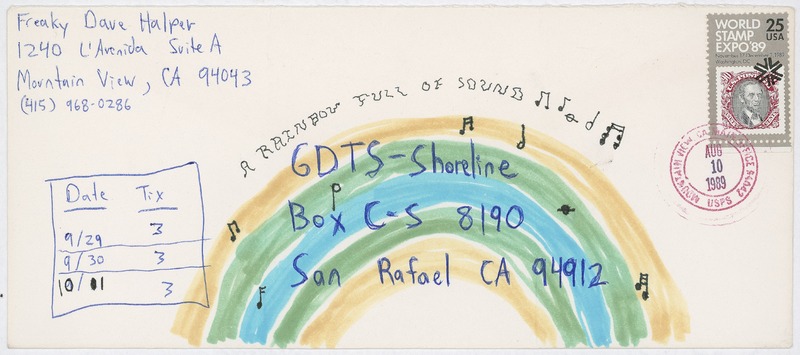 Freaky Dave Halper
1240 L'Avenida Suite A
Mountain View, CA 94043
(415) 968-0286
WORLD
STAMP
EXPO'89
25
USA
A RAINBOW FULL OF SOUND
MOUNTAIN VIEW, CA
94043
AUG
10
1989
USPS
GDTS-Shoreline
Box C-S 8190
San Rafael CA 94912
Date Tix
9/29 3
9/30 3
10/1 3